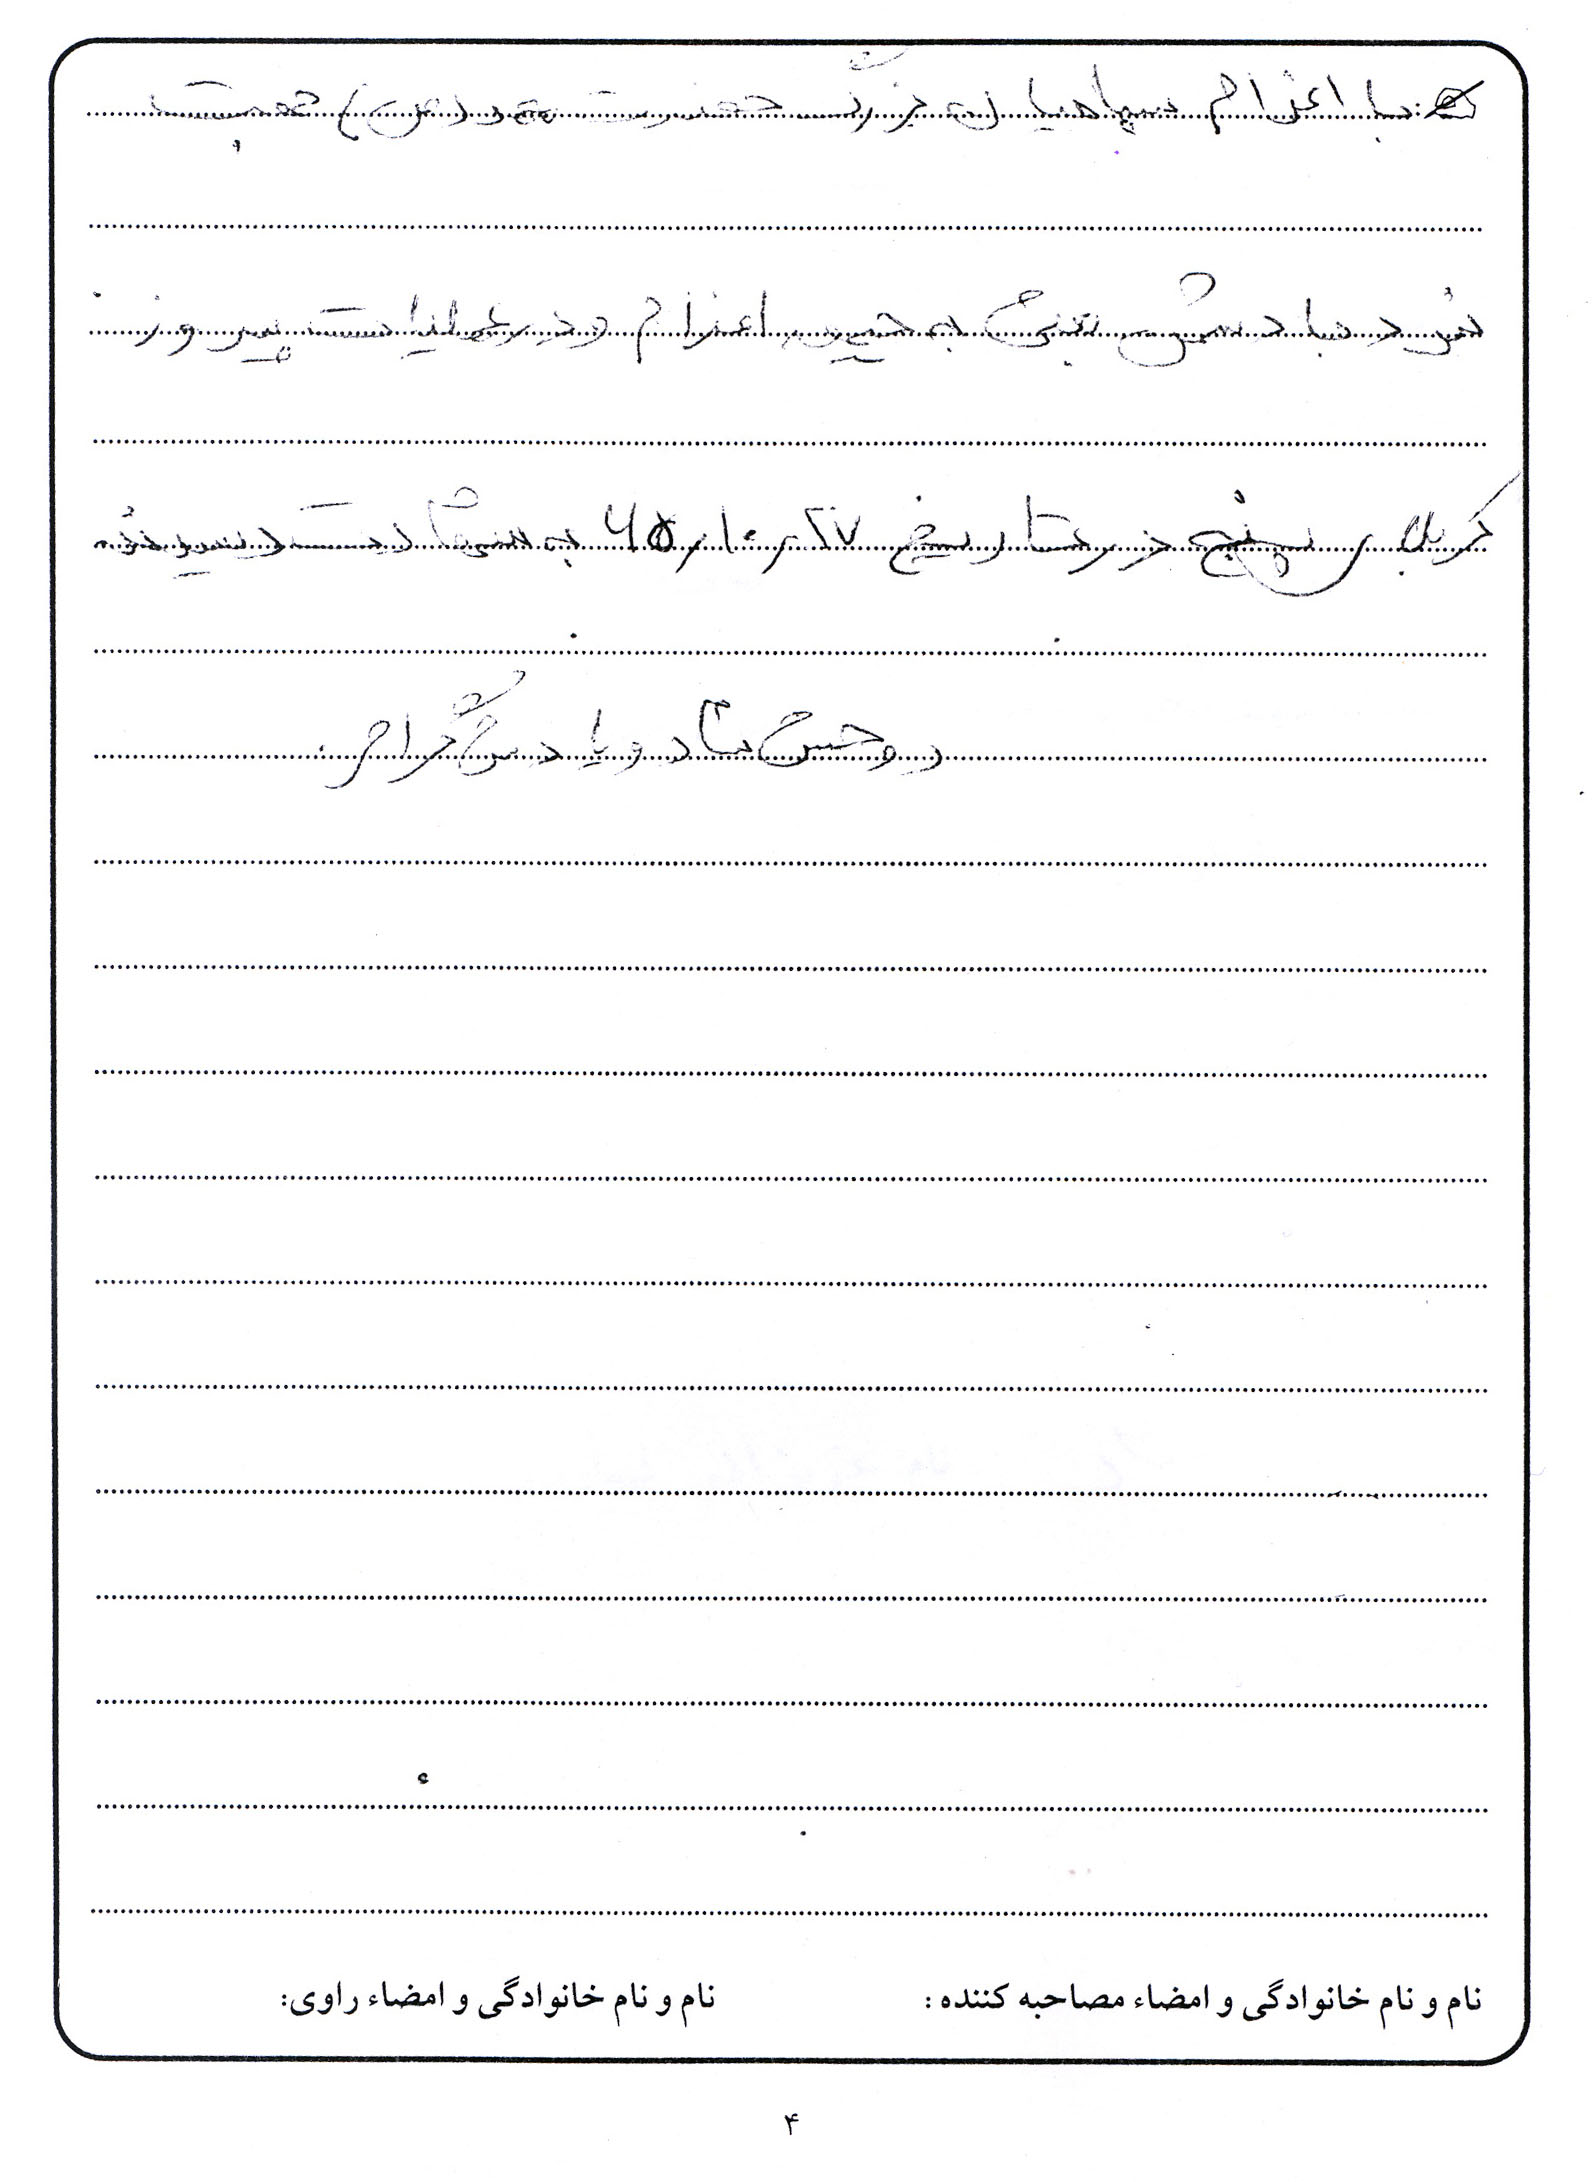 با اعزام سپاهیان بزرگ حضرت محمد (ص) جهت
نبرد با دشمن بعثی به جبهه اعزام و در عملیات پیروز
کربلای پنج در تاریخ ۲۷ر۱۰ر۶۵ به شهادت رسیدند
روحش شاد و یادش گرامی.
نام و نام خانوادگی و امضاء مصاحبه کننده :
نام و نام خانوادگی و امضاء راوی:
۴